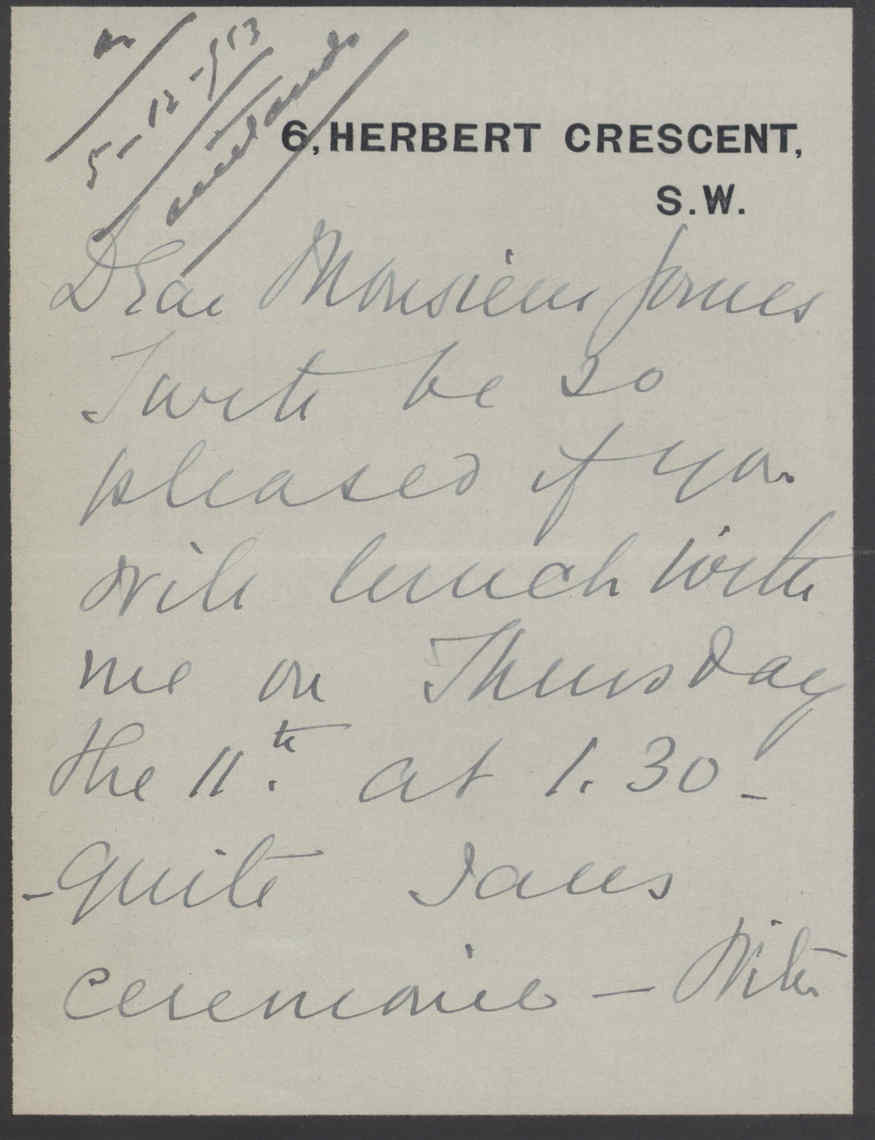 5-12-913
6, HERBERT CRESCENT,
S.W.
Dear Monsieur
I will be so
pleased if you
will lunch with
me on Thursday
the 11th. at 1.30 -
- quite sans
ceremonie - With